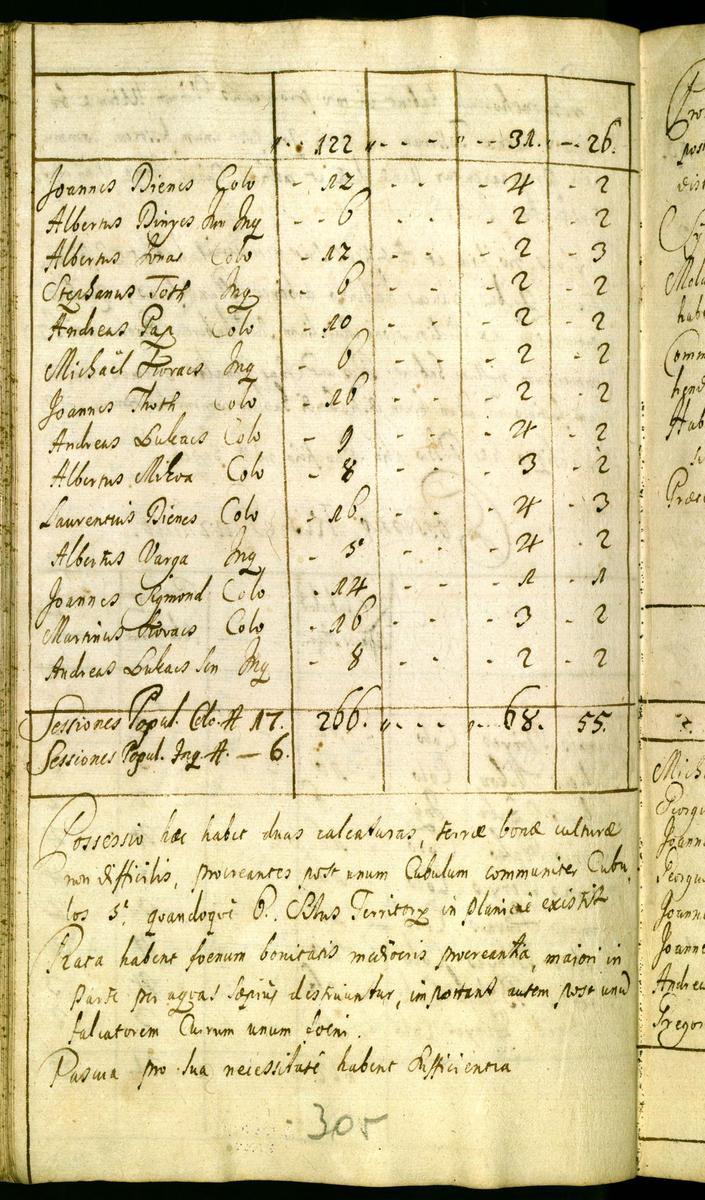 „ - 122 „ - - - „ - 31. „ - 26.
Joannes Dienes Colo - 12 - - - 4 - 2
Albertus Dinyes Inq - 6 - - - 2 - 2
Albertus Jonas Colo - 12 - - - 2 - 3
Stephanus Toth Inq - 6 - - - 2 - 2
Andreas Pap Colo - 10 - - - 2 - 2
Michaël Kovacs Inq - 6 - - - 2 - 2
Joannes Thoth Colo - 16 - - - 2 - 2
Andreas Lukacs Colo - 9 - - - 4 - 2
Albertus Mihva Colo - 8 - - - 3 - 2
Laurentius Dienes Colo - 16 - - - 4 - 3
Albertus Varga Inq - 5 - - - 4 - 2
Joannes Sigmond Colo - 14 - - - 1 - 1
Martinus Kovacs Colo - 16 - - - 3 - 2
Andreas Lukacs Sen Inq - 8 - - - 2 - 2
Sessiones Popul. Colo. # 17. 266. „ - - - „ - 68. 55.
Sessiones Popul. Inq # — 6.
Possessio hæc habet duas calcaturas, terræ bonæ culturæ
non difficilis, procreantes post unum Cubulum communiter Cubu
los 5. quandoque 6. Situs Territorij in planicie existit
Prata habent foenum bonitatis mediocris procreantia, majori in
parte per aquas sæpius destruuntur, important autem post unū
falcatorem Currum unum foeni.
Pascua pro sua necessitate habent sufficientia
305